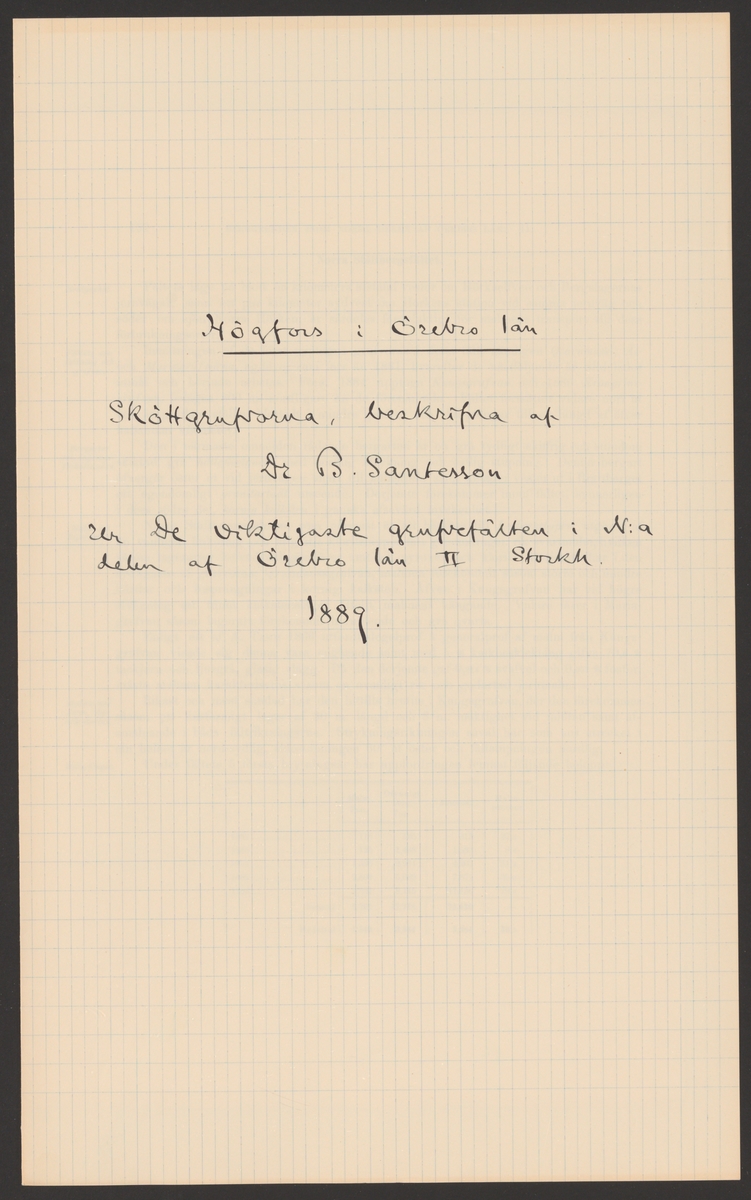 Högfors i Örebro län
Sköttgrufvorna, beskrifna af
Dr B. Santesson
se De viktigaste grufvefälten i N:a
delen af Örebro län II Stockh.
1889.